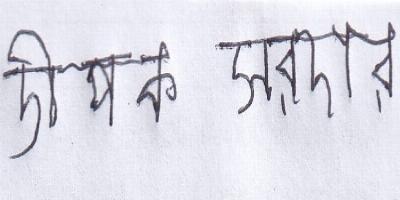 দীপক সরদার